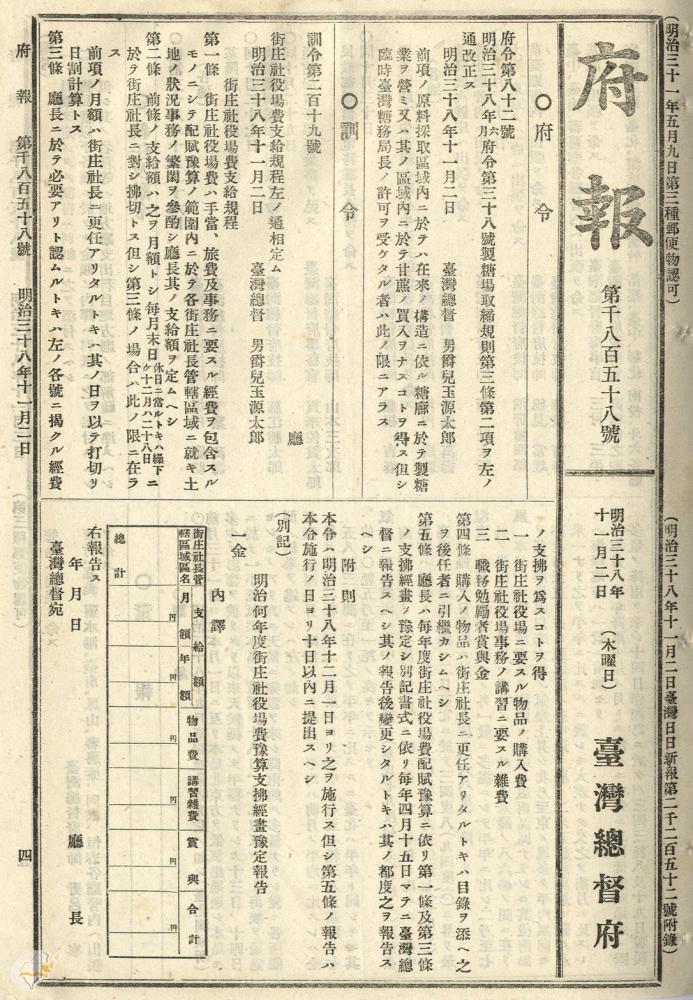 (明治三十一年五月九日第三種郵便物認可)
(明治三十八年十一月二日臺灣日日新報第二千二百五十二號附錄)
府報
第千八百五十八號
明治三十八年
十一月二日
(木曜日)
臺灣總督府
○府令
府令第八十二號
明治三十八年六月府令第三十八號製糖場取締規則第三條第二項ヲ左ノ
通改正ス
明治三十八年十一月二日
臺灣總督 男爵兒玉源太郎
前項ノ原料採取區域內ニ於テハ在來ノ構造ニ依ル糖廍ニ於テ製糖
業ヲ營ミ又ハ其ノ區域內ニ於テ甘蔗ノ買入ヲナスコトヲ得ス但シ
臨時臺灣糖務局長ノ許可ヲ受ケタル者ハ此ノ限ニアラス
○訓令
訓令第二百十九號
廳
街庄社役場費支給規程左ノ通相定ム
明治三十八年十一月二日
臺灣總督 男爵兒玉源太郎
街庄社役場費支給規程
第一條 街庄社役場費ハ手當、旅費及事務ニ要スル經費ヲ包含スル
モノニシテ配賦豫算ノ範圍內ニ於テ各街庄社長管轄區域ニ就キ土
地ノ狀況事務ノ繁閑ヲ參酌シ廳長其ノ支給額ヲ定ムヘシ
第二條 前條ノ支給額ハ之ヲ月額トシ每月末日休日ニ當ルトキハ繰下ニケ十二月ハ二十八日
於テ街庄社長ニ對シ拂切トス但シ第三條ノ場合ハ此ノ限ニ在ラ
ス
前項ノ月額ハ街庄社長ニ更任アリタルトキハ其ノ日ヲ以テ打切リ
日割計算トス
第三條 廳長ニ於テ必要アリト認ムルトキハ左ノ各號ニ揭クル經費
ノ支拂ヲ爲スコトヲ得
一 街庄社役場ニ要スル物品ノ購入費
二 街庄社役場事務ノ講習ニ要スル雜費
三 職務勉勵者賞與金
第四條 購入ノ物品ハ街庄社長ニ更任アリタルトキハ目錄ヲ添ヘ之
ヲ後任者ニ引繼カシムヘシ
第五條 廳長ハ每年度街庄社役場費配賦豫算ニ依リ第一條及第三條
ノ支拂經畫ノ豫定シ別記書式ニ依リ每年四月十五日マテニ臺灣總
督ニ報告スヘシ其ノ報告後變更シタルトキハ其ノ都度之ヲ報告ス
ヘシ
附則
本令ハ明治三十八年十二月一日ヨリ之ヲ施行ス但シ第五條ノ報告ハ
本令施行ノ日ヨリ十日以內ニ提出スヘシ
(別記)
明治何年度街庄社役場費豫算支拂經畫豫定報告
一金
內譯
街庄社長管
轄區域區名
支給額
月額
年額
物品費
講習雜費
賞與
合計
円
円
円
円
円
円
總計
右報告ス
年月日
廳長
臺灣總督宛
府報 第千八百五十八號 明治三十八年十一月二日
四